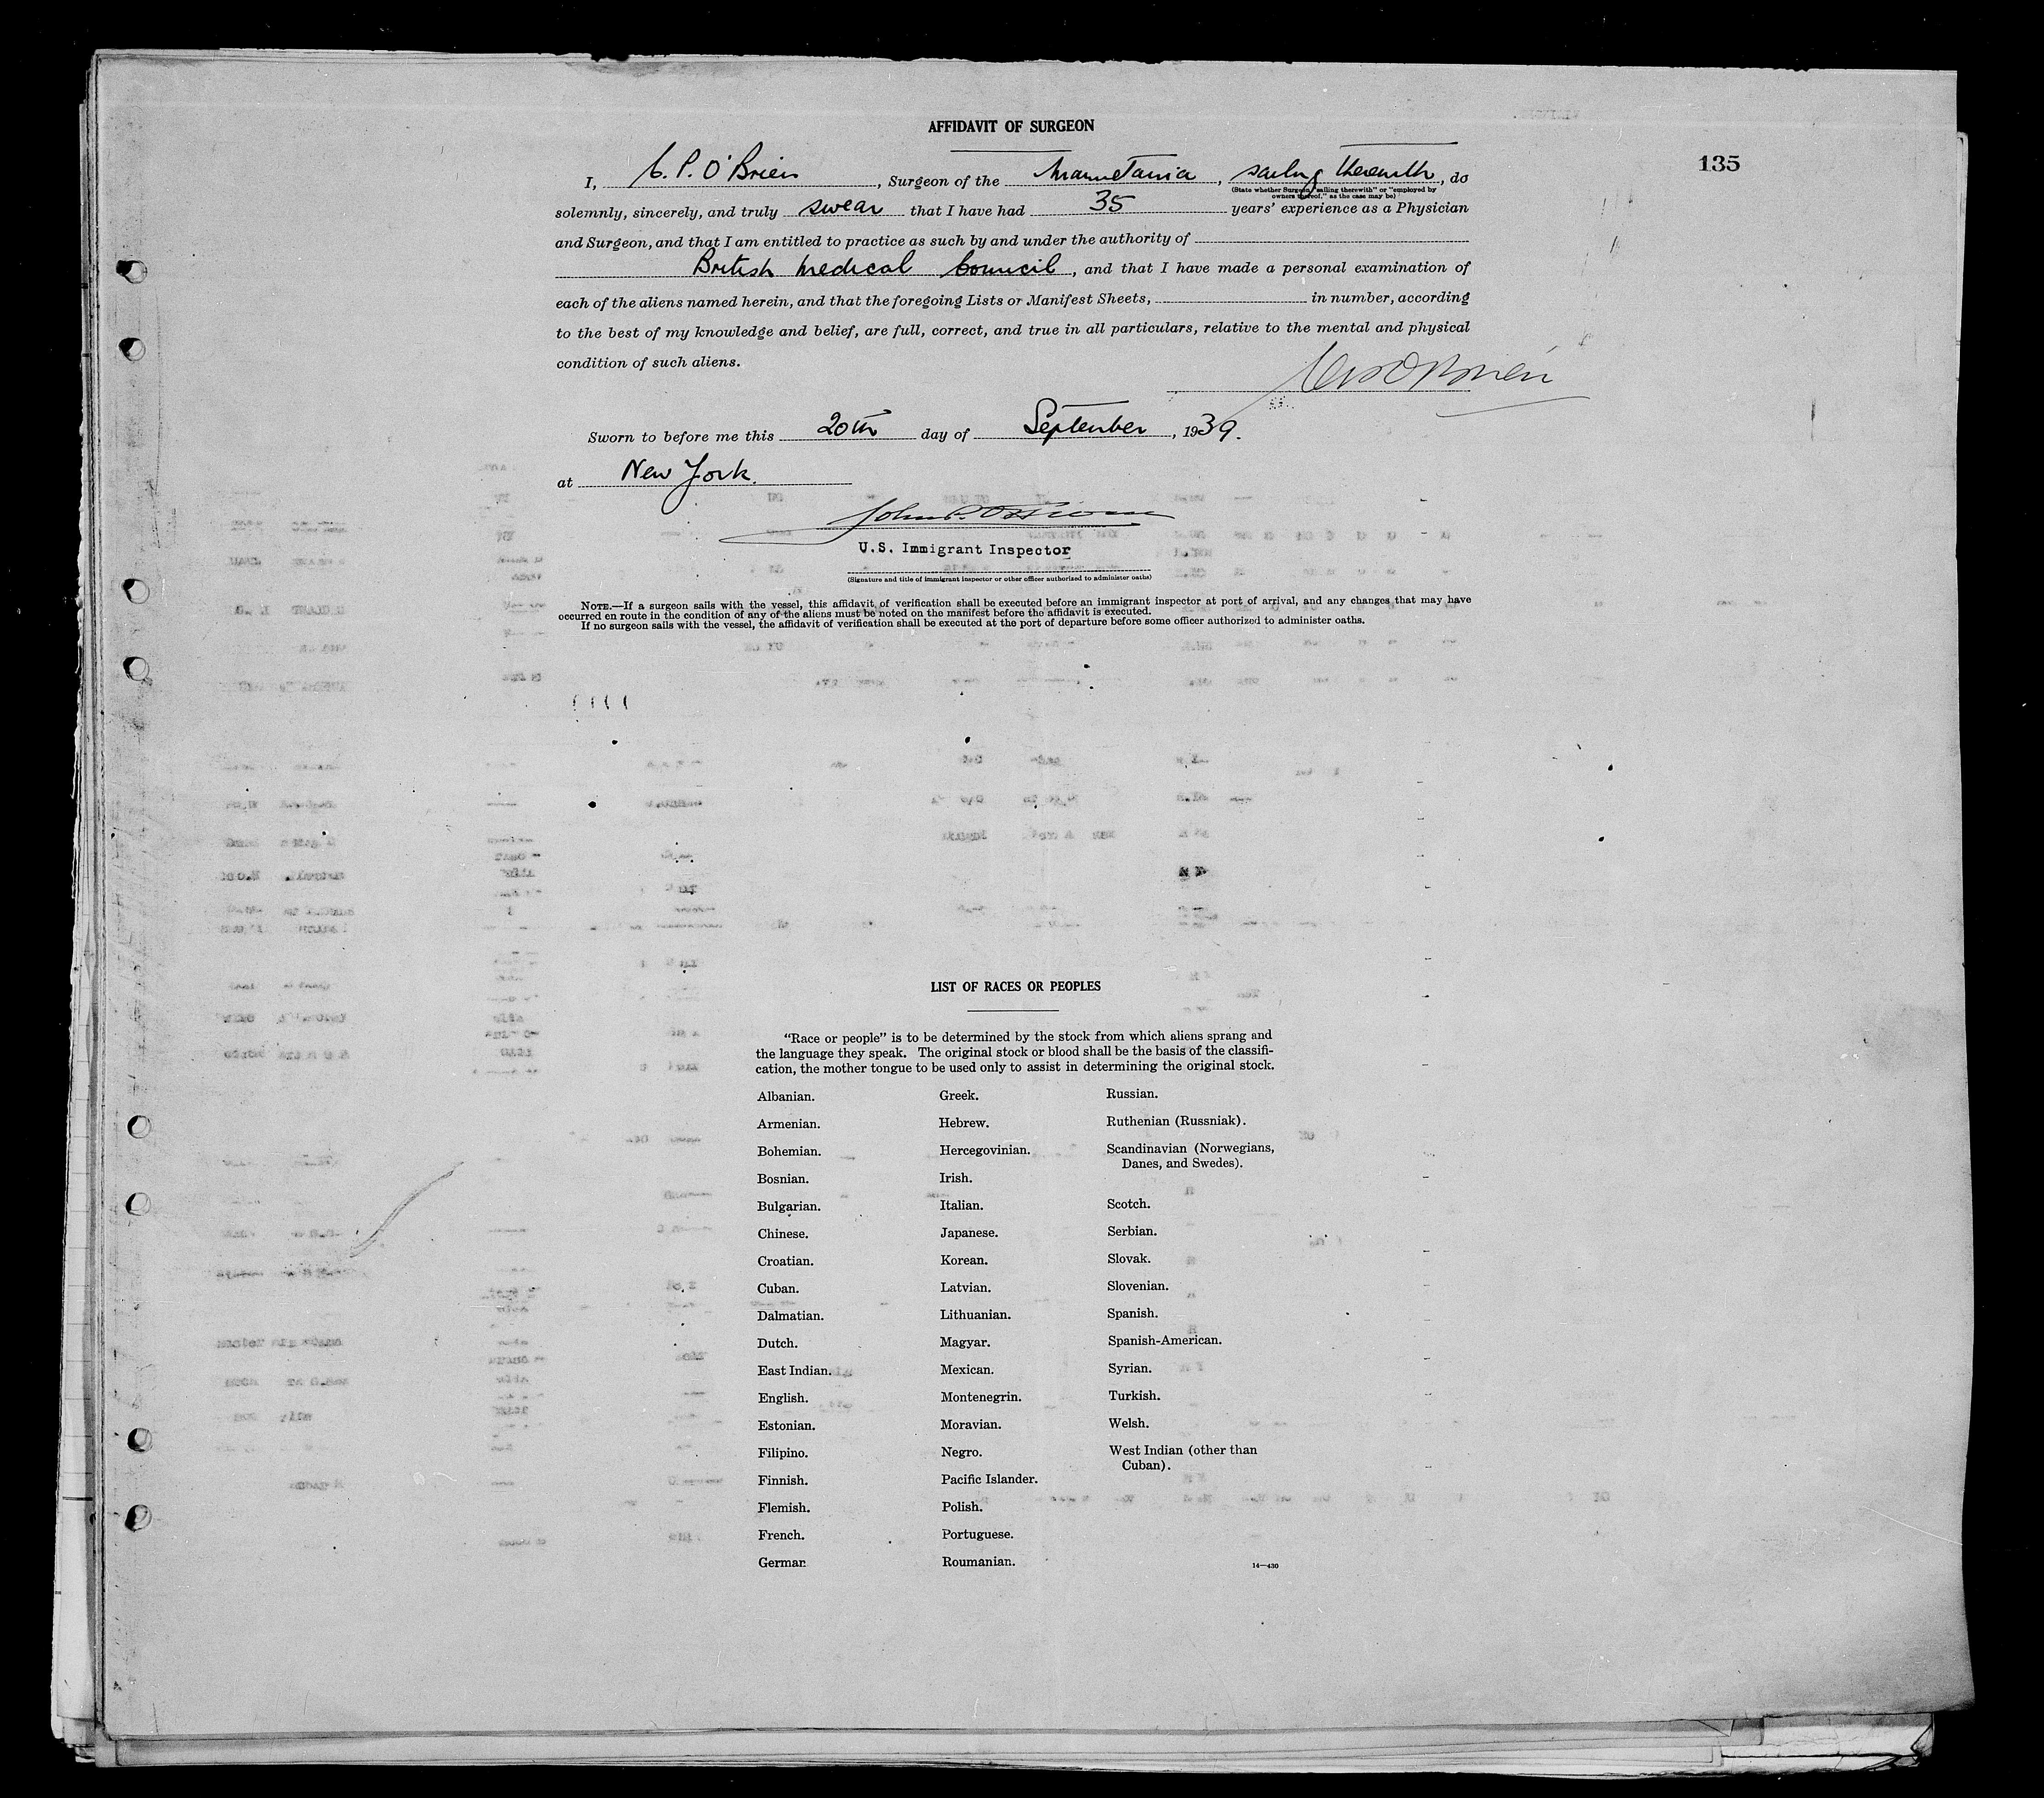 AFFIDAVIT OF SURGEON
135
I, C. P. O'Brien, Surgeon of the Mauretania, sailing therewith, do
(State whether Surgeon "sailing therewith" or "employed by
owners thereof," as the case may be)
solemnly, sincerely, and truly swear that I have had 35 years' experience as a Physician
and Surgeon, and that I am entitled to practice as such by and under the authority of
British Medical Council, and that I have made a personal examination of
each of the aliens named herein, and that the foregoing Lists or Manifest Sheets, in number, according
to the best of my knowledge and belief, are full, correct, and true in all particulars, relative to the mental and physical
condition of such aliens.
O'Brien
Sworn to before me this 20th day of September, 1939.
at New York.
John P.
U.S. Immigrant Inspector
(Signature and title of immigrant inspector or other officer authorized to administer oaths)
NOTE.—If a surgeon sails with the vessel, this affidavit of verification shall be executed before an immigrant inspector at port of arrival, and any changes that may have
occurred en route in the condition of any of the aliens must be noted on the manifest before the affidavit is executed.
If no surgeon sails with the vessel, the affidavit of verification shall be executed at the port of departure before some officer authorized to administer oaths.
LIST OF RACES OR PEOPLES
"Race or people" is to be determined by the stock from which aliens sprang and
the language they speak. The original stock or blood shall be the basis of the classifi-
cation, the mother tongue to be used only to assist in determining the original stock.
Albanian.
Armenian.
Bohemian.
Bosnian.
Bulgarian.
Chinese.
Croatian.
Cuban.
Dalmatian.
Dutch.
East Indian.
English.
Estonian.
Filipino.
Finnish.
Flemish.
French.
German.
Greek.
Hebrew.
Hercegovinian.
Irish.
Italian.
Japanese.
Korean.
Latvian.
Lithuanian.
Magyar.
Mexican.
Montenegrin.
Moravian.
Negro.
Pacific Islander.
Polish.
Portuguese.
Roumanian.
Russian.
Ruthenian (Russniak).
Scandinavian (Norwegians,
Danes, and Swedes).
Scotch.
Serbian.
Slovak.
Slovenian.
Spanish.
Spanish-American.
Syrian.
Turkish.
Welsh.
West Indian (other than
Cuban).
14—430